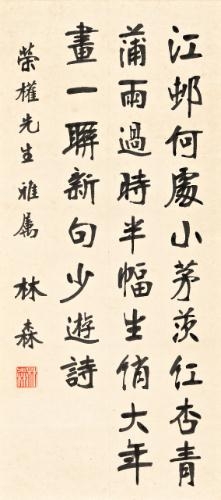 江邨何處小茅茨紅杏青
蒲雨過時半幅生綃大年
畫一聯新句少遊詩
榮權先生雅屬
林森